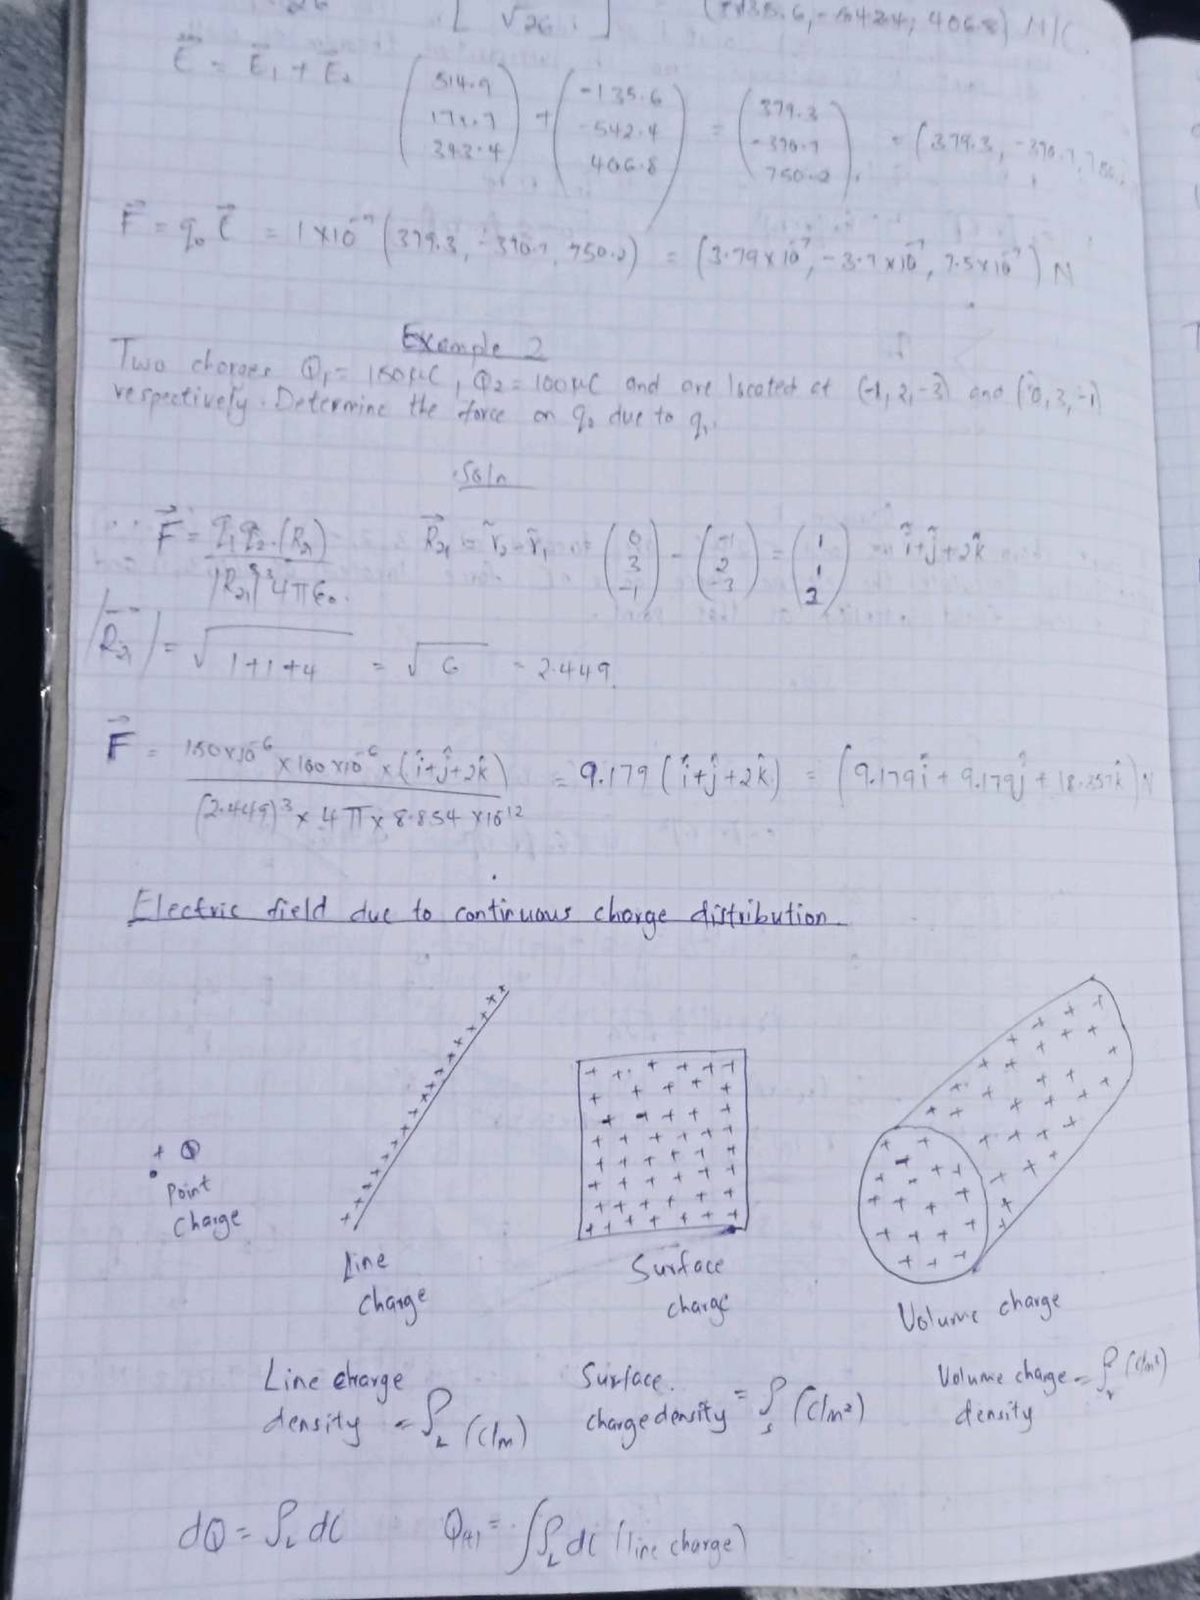 √26
E⃗ = E⃗₁ + E⃗₂ (514.9, 171.7, 343.4) + (-135.6, -542.4, 406.8) = (379.3, -370.7, 750.2), = (379.3, -370.7,
F⃗ = q₀ E⃗ = 1×10⁻⁹ (379.3, -370.7, 750.2) = (3.79×10⁻⁷, -3.7×10⁻⁷, 7.5×10⁻⁷) N
Example 2
Two charges Q₁= 150μC, Q₂ = 100μC and are located at (-1, 2, -3) and (0, 3, -1)
respectively. Determine the force on q₂ due to q₁.
Soln
F⃗ = q₁q₂.(R₂₁) / |R₂₁|³4πε₀. R⃗₂₁ = r̃₂ - r̃₁ = (0, 3, -1) - (-1, 2, -3) = (1, 1, 2) î+ĵ+2k̂
|R⃗₂₁| = √1+1+4 = √6 = 2.449.
F⃗ = 150×10⁻⁶ × 100×10⁻⁶ × (î+ĵ+2k̂) / (2.449)³ × 4π × 8.854 ×10⁻¹² = 9.179 (î+ĵ+2k̂) = (9.179î + 9.179ĵ + 18.357k̂) N
Electric field due to continuous charge distribution.
+ Q
Point
charge
Line
charge
Surface
charge
Volume charge
Line charge
density = ρL (C/m)
Surface.
charge density = ρs (C/m²)
Volume charge = ρv (C/m³)
density
dQ = ρL dl Q = ∫ρL dl (line charge)